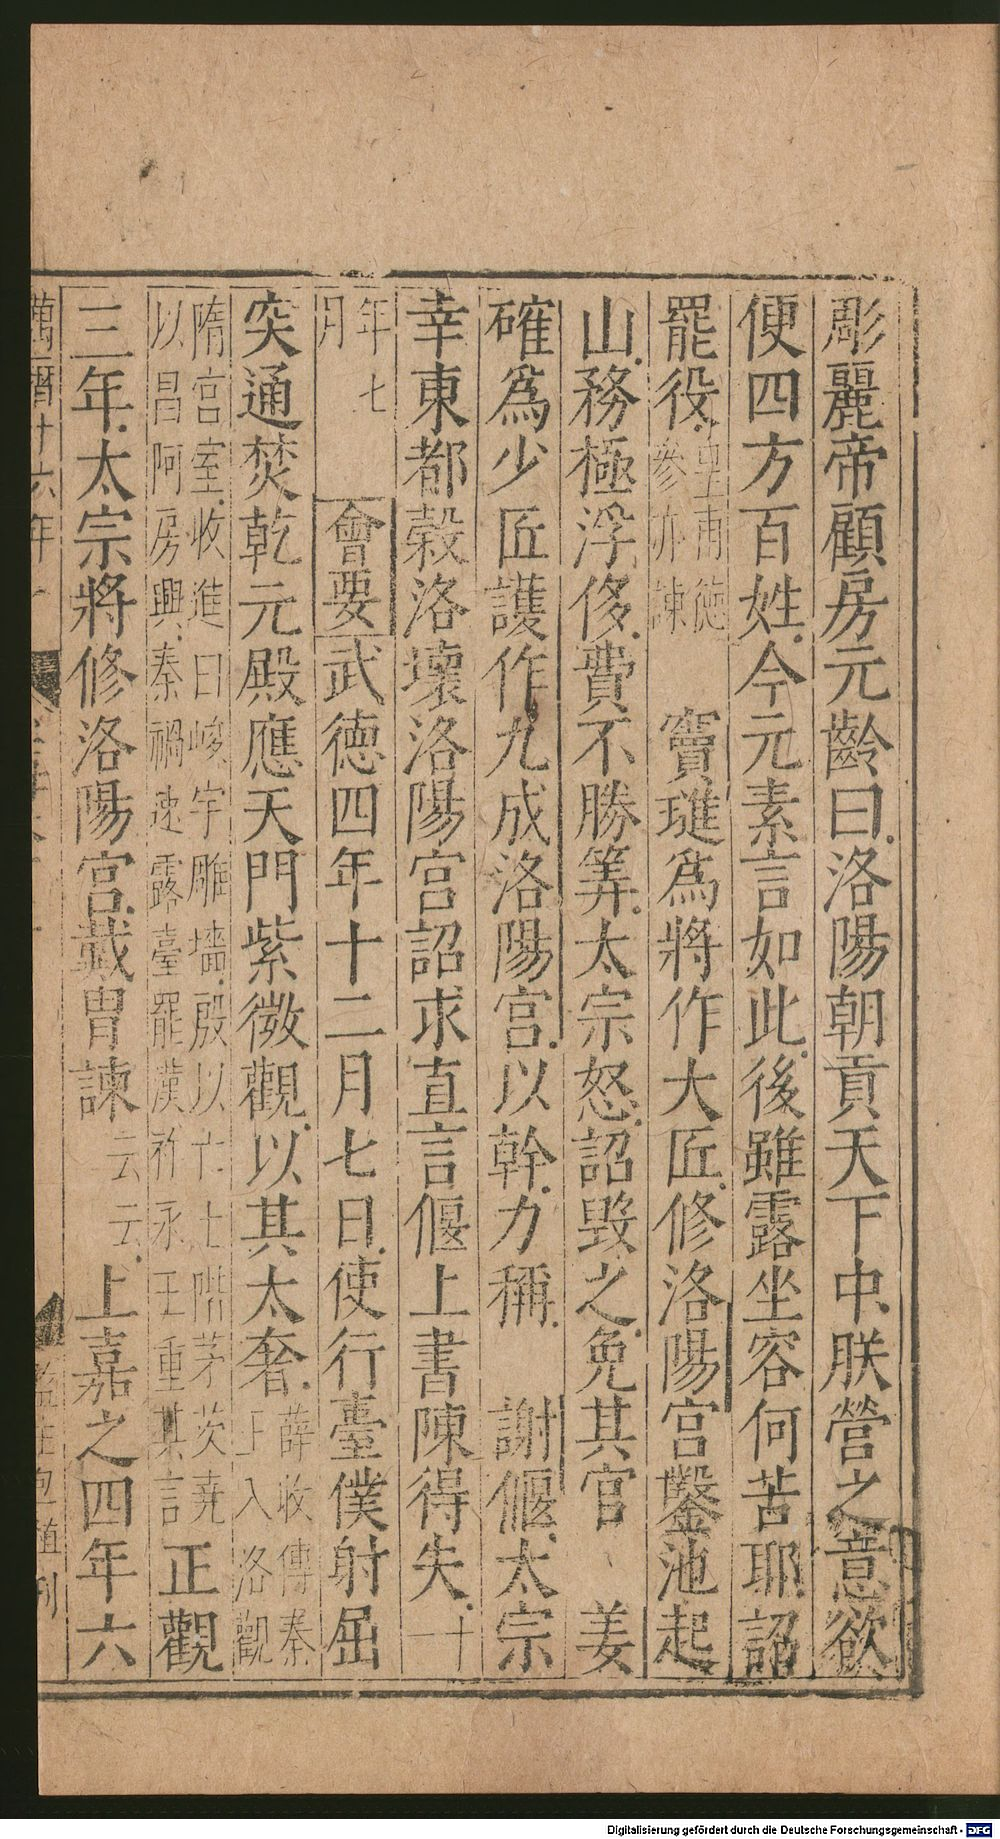 彫麗帝顧房元齡曰洛陽朝貢天下中朕營之意欲
便四方百姓今元素言如此後雖露坐容何苦耶詔
罷役皇甫德參亦諫 竇璡爲將作大匠修洛陽宮鑿池起
山務極浮侈費不勝筭太宗怒詔毀之免其官 姜
確爲少匠護作九成洛陽宮以幹力稱 謝偃太宗
幸東都穀洛壞洛陽宮詔求直言偃上書陳得失十
年七月 會要武德四年十二月七日使行臺僕射屈
突通焚乾元殿應天門紫微觀以其太奢薛收傳秦王入洛觀
隋宮室收進曰峻宇雕墻殷以亡土階茅茨堯以昌阿房興秦禍速露臺罷漢祚永王重其言正觀
三年太宗將修洛陽宮戴胄諫云云上嘉之四年六
萬曆十六年
刊
Digitalisierung gefördert durch die Deutsche Forschungsgemeinschaft - DFG